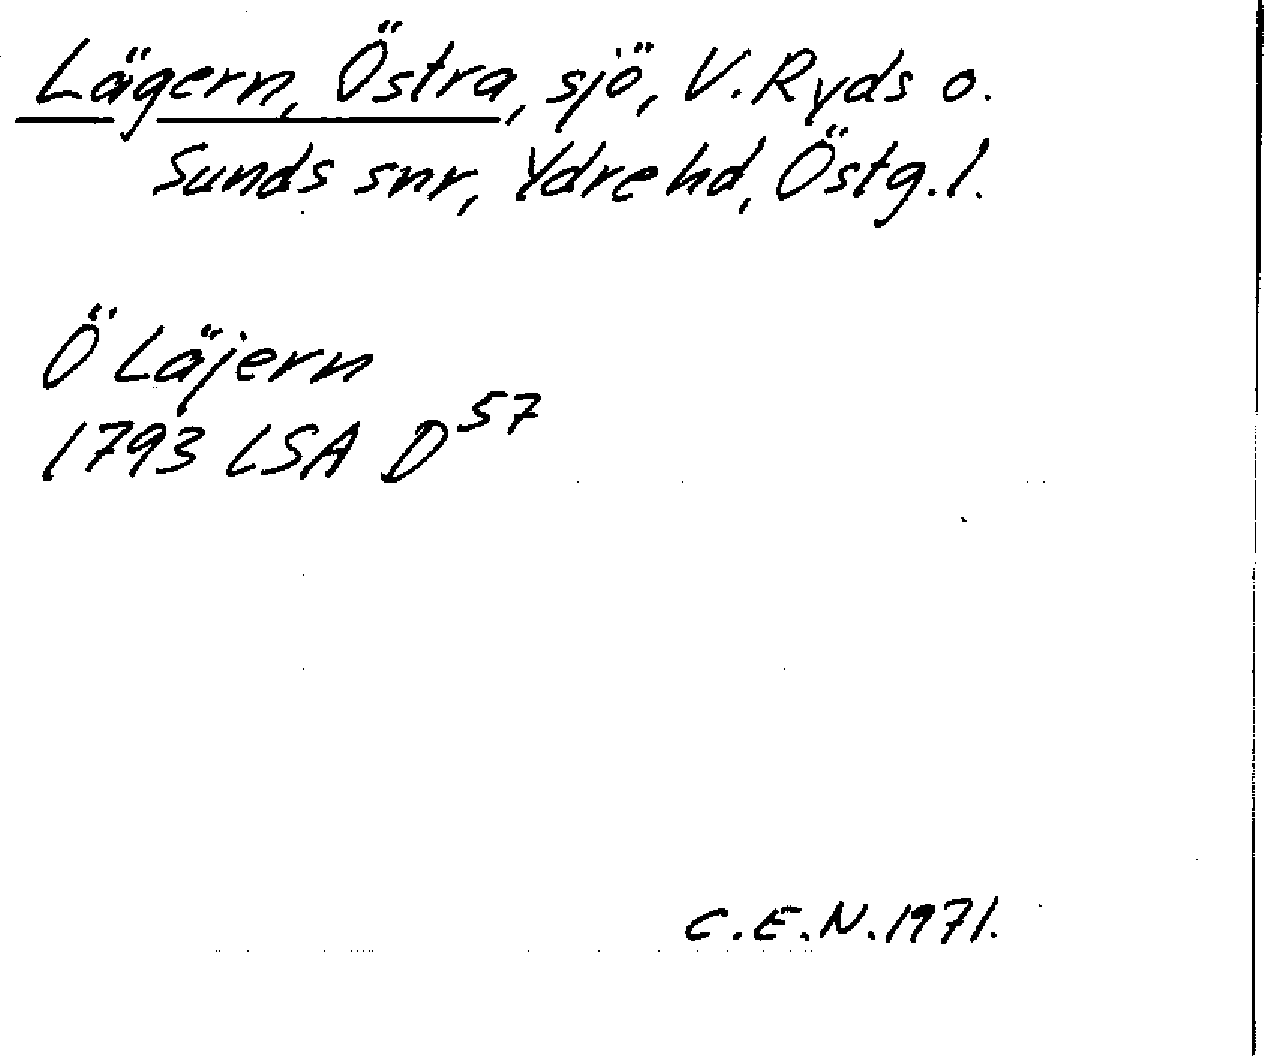 Lägern, Östra, sjö, V. Ryds o.
Sunds snr, Ydre hd, Östg.l.
Ö Läjern
1793 LSA D57
C.E.N. 1971.